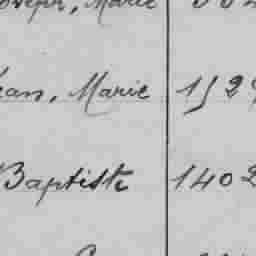 Joseph, Marie
ean, Marie 152
Baptiste 1402